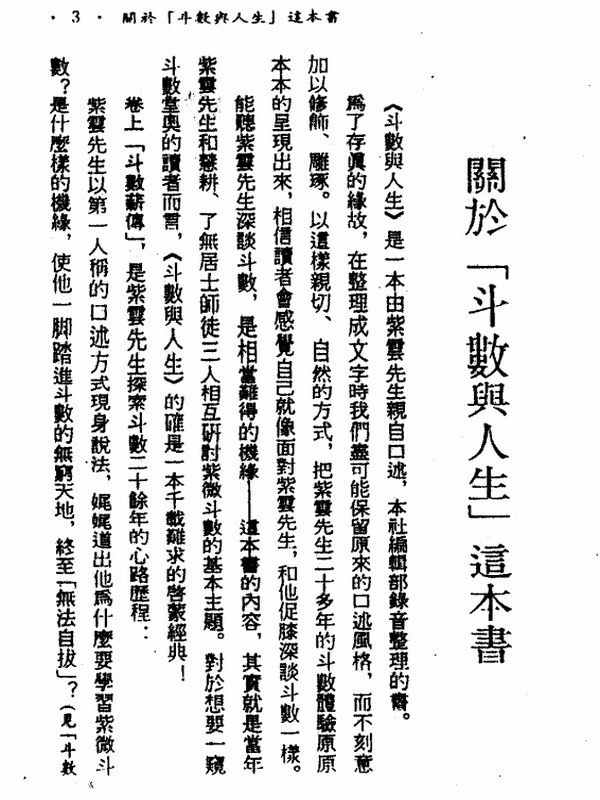 ・3・ 關於「斗數與人生」這本書
關於「斗數與人生」這本書
《斗數與人生》是一本由紫雲先生親自口述，本社編輯部錄音整理的書。
為了存眞的緣故，在整理成文字時我們盡可能保留原來的口述風格，而不刻意
加以修飾、雕琢。以這樣親切、自然的方式，把紫雲先生二十多年的斗數體驗原原
本本的呈現出來，相信讀者會感覺自己就像面對紫雲先生，和他促膝深談斗數一樣。
能聽紫雲先生深談斗數，是相當難得的機緣——這本書的內容，其實就是當年
紫雲先生和慧耕、了無居士師徒三人相互研討紫微斗數的基本主題。對於想要一窺
斗數堂奧的讀者而言，《斗數與人生》的確是一本千載難求的啓蒙經典！
卷上「斗數薪傳」，是紫雲先生探索斗數二十餘年的心路歷程：
紫雲先生以第一人稱的口述方式現身說法，娓娓道出他爲什麼要學習紫微斗
數？是什麼樣的機緣，使他一脚踏進斗數的無窮天地，終至「無法自拔」？（見「斗數